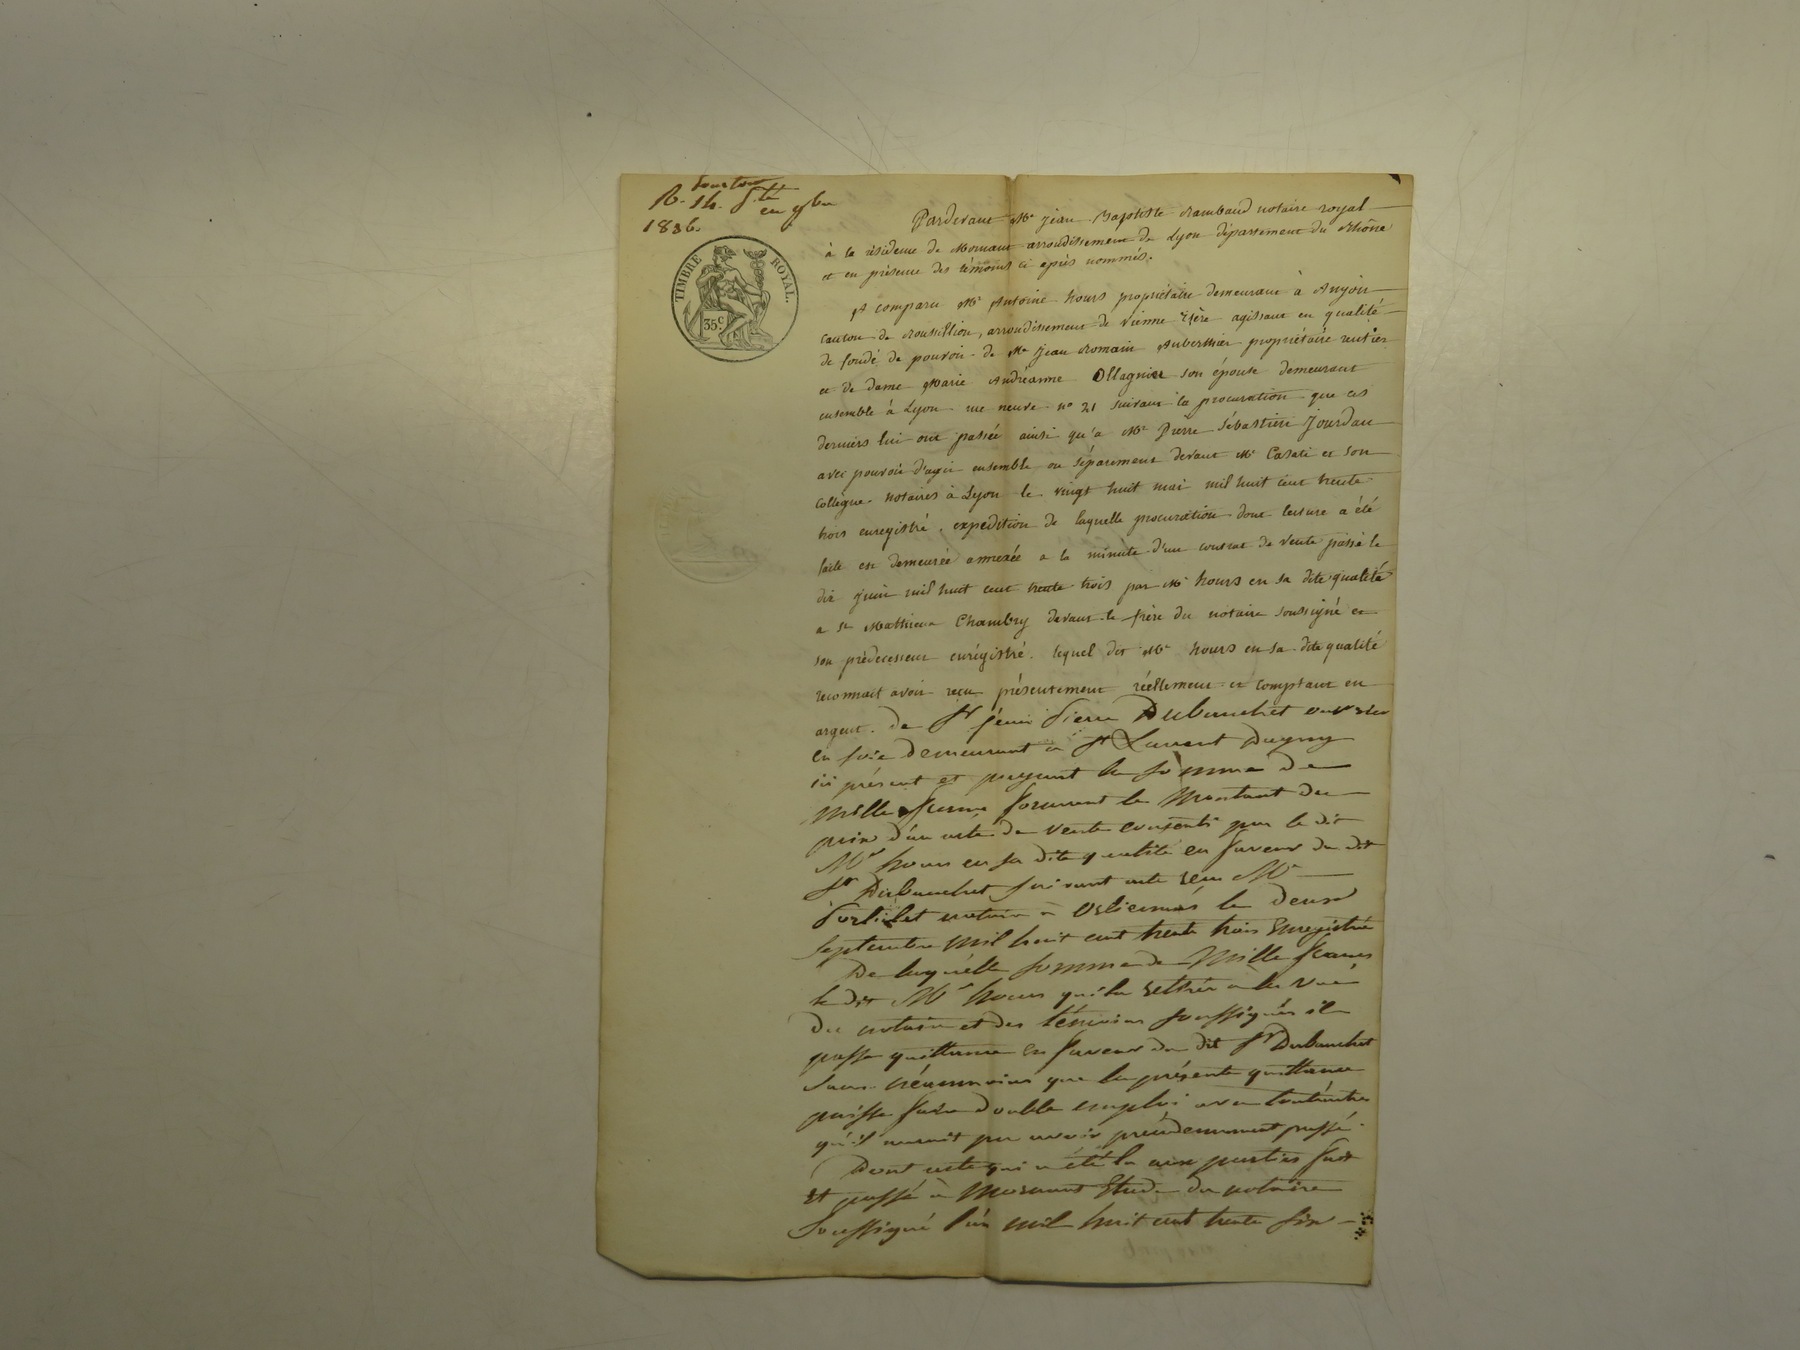 R. 14.
1836.
TIMBRE ROYAL.
35 c.
Pardevant Me Jean Baptiste Rambaud notaire royal
à la résidence de Mornant arroudissement de Lyon département du Rhône
et en présence des témoins ci après nommés.
A comparu Mr Antoine hours propriétaire demeurant à Anjou
canton de Roussillon, arroudissement de Vienne Isère agissant en qualité
de fondé de pouvoir de Mr Jean Romain Aubernier propriétaire rentier
et de dame Marie Andréanne Ollagnier son épouse demeurant
ensemble à Lyon rue neuve no 21 suivant la procuration que ces
derniers lui ont passée ainsi qu'a Mr Pierre Sébastien Jourdan
avec pouvoir d'agir ensemble ou séparement devant Me Casati et son
Collègue notaires à Lyon le vingt huit mai mil huit cent trente
trois enregistré, expédition de laquelle procuration dont lecture a été
faite est demeurée annexée a la minute d'un contrat de vente passé le
dix juin mil huit cent trente trois par Mr hours en sa dite qualité
a sr Matthieu Chambry devant le frère du notaire soussigné et
son prédecesseur enrégistré. lequel dit Mr hours en sa dite qualité
reconnait avoir reçu présentement réellement et comptant en
argent. de Sr Jean Pierre Dubanchet ouvrier
en soie demeurant a St Laurent Dagny
ici présent et payant la somme de
mille francs formant le montant du
prix d'un acte de vente consenti par le dit
Mr hours en sa dite qualité en faveur du dit
Sr Dubanchet suivant acte reçu Me
notaire a Orliennas le deux
septembre mil huit cent trente trois Enregistré
De laquelle somme de Mille francs
le dit Mr hours qui la retirée a la vue
du notaire et des témoins soussignés il
passe quittance en faveur du dit Sr Dubanchet
sans néammoins que la présente quittance
puisse faire double emploi avec toutes autres
qu'il aurait pu avoir précédemment passé.
Dont acte qui a été lu aux parties fait
Et passé à Mornant Etude du notaire
Soussigné l'an mil huit cent trente six